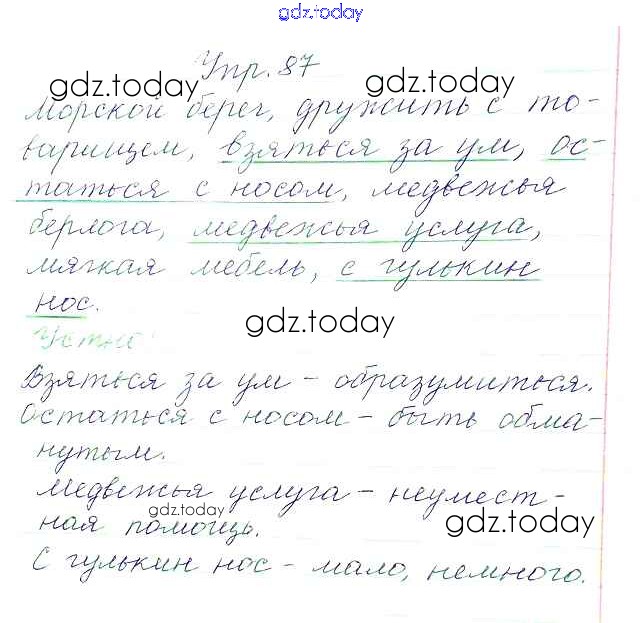 gdz.today
Упр. 87
gdz.today
gdz.today
Морской берег, дружить с то-
варищем, взяться за ум, ос-
таться с носом, медвежья
берлога, медвежья услуга,
мягкая мебель, с гулькин
нос.
gdz.today
Устно:
Взяться за ум – образумиться.
Остаться с носом – быть обма-
нутым.
Медвежья услуга – неумест-
gdz.today
ная помощь.
gdz.today
С гулькин нос – мало, немного.